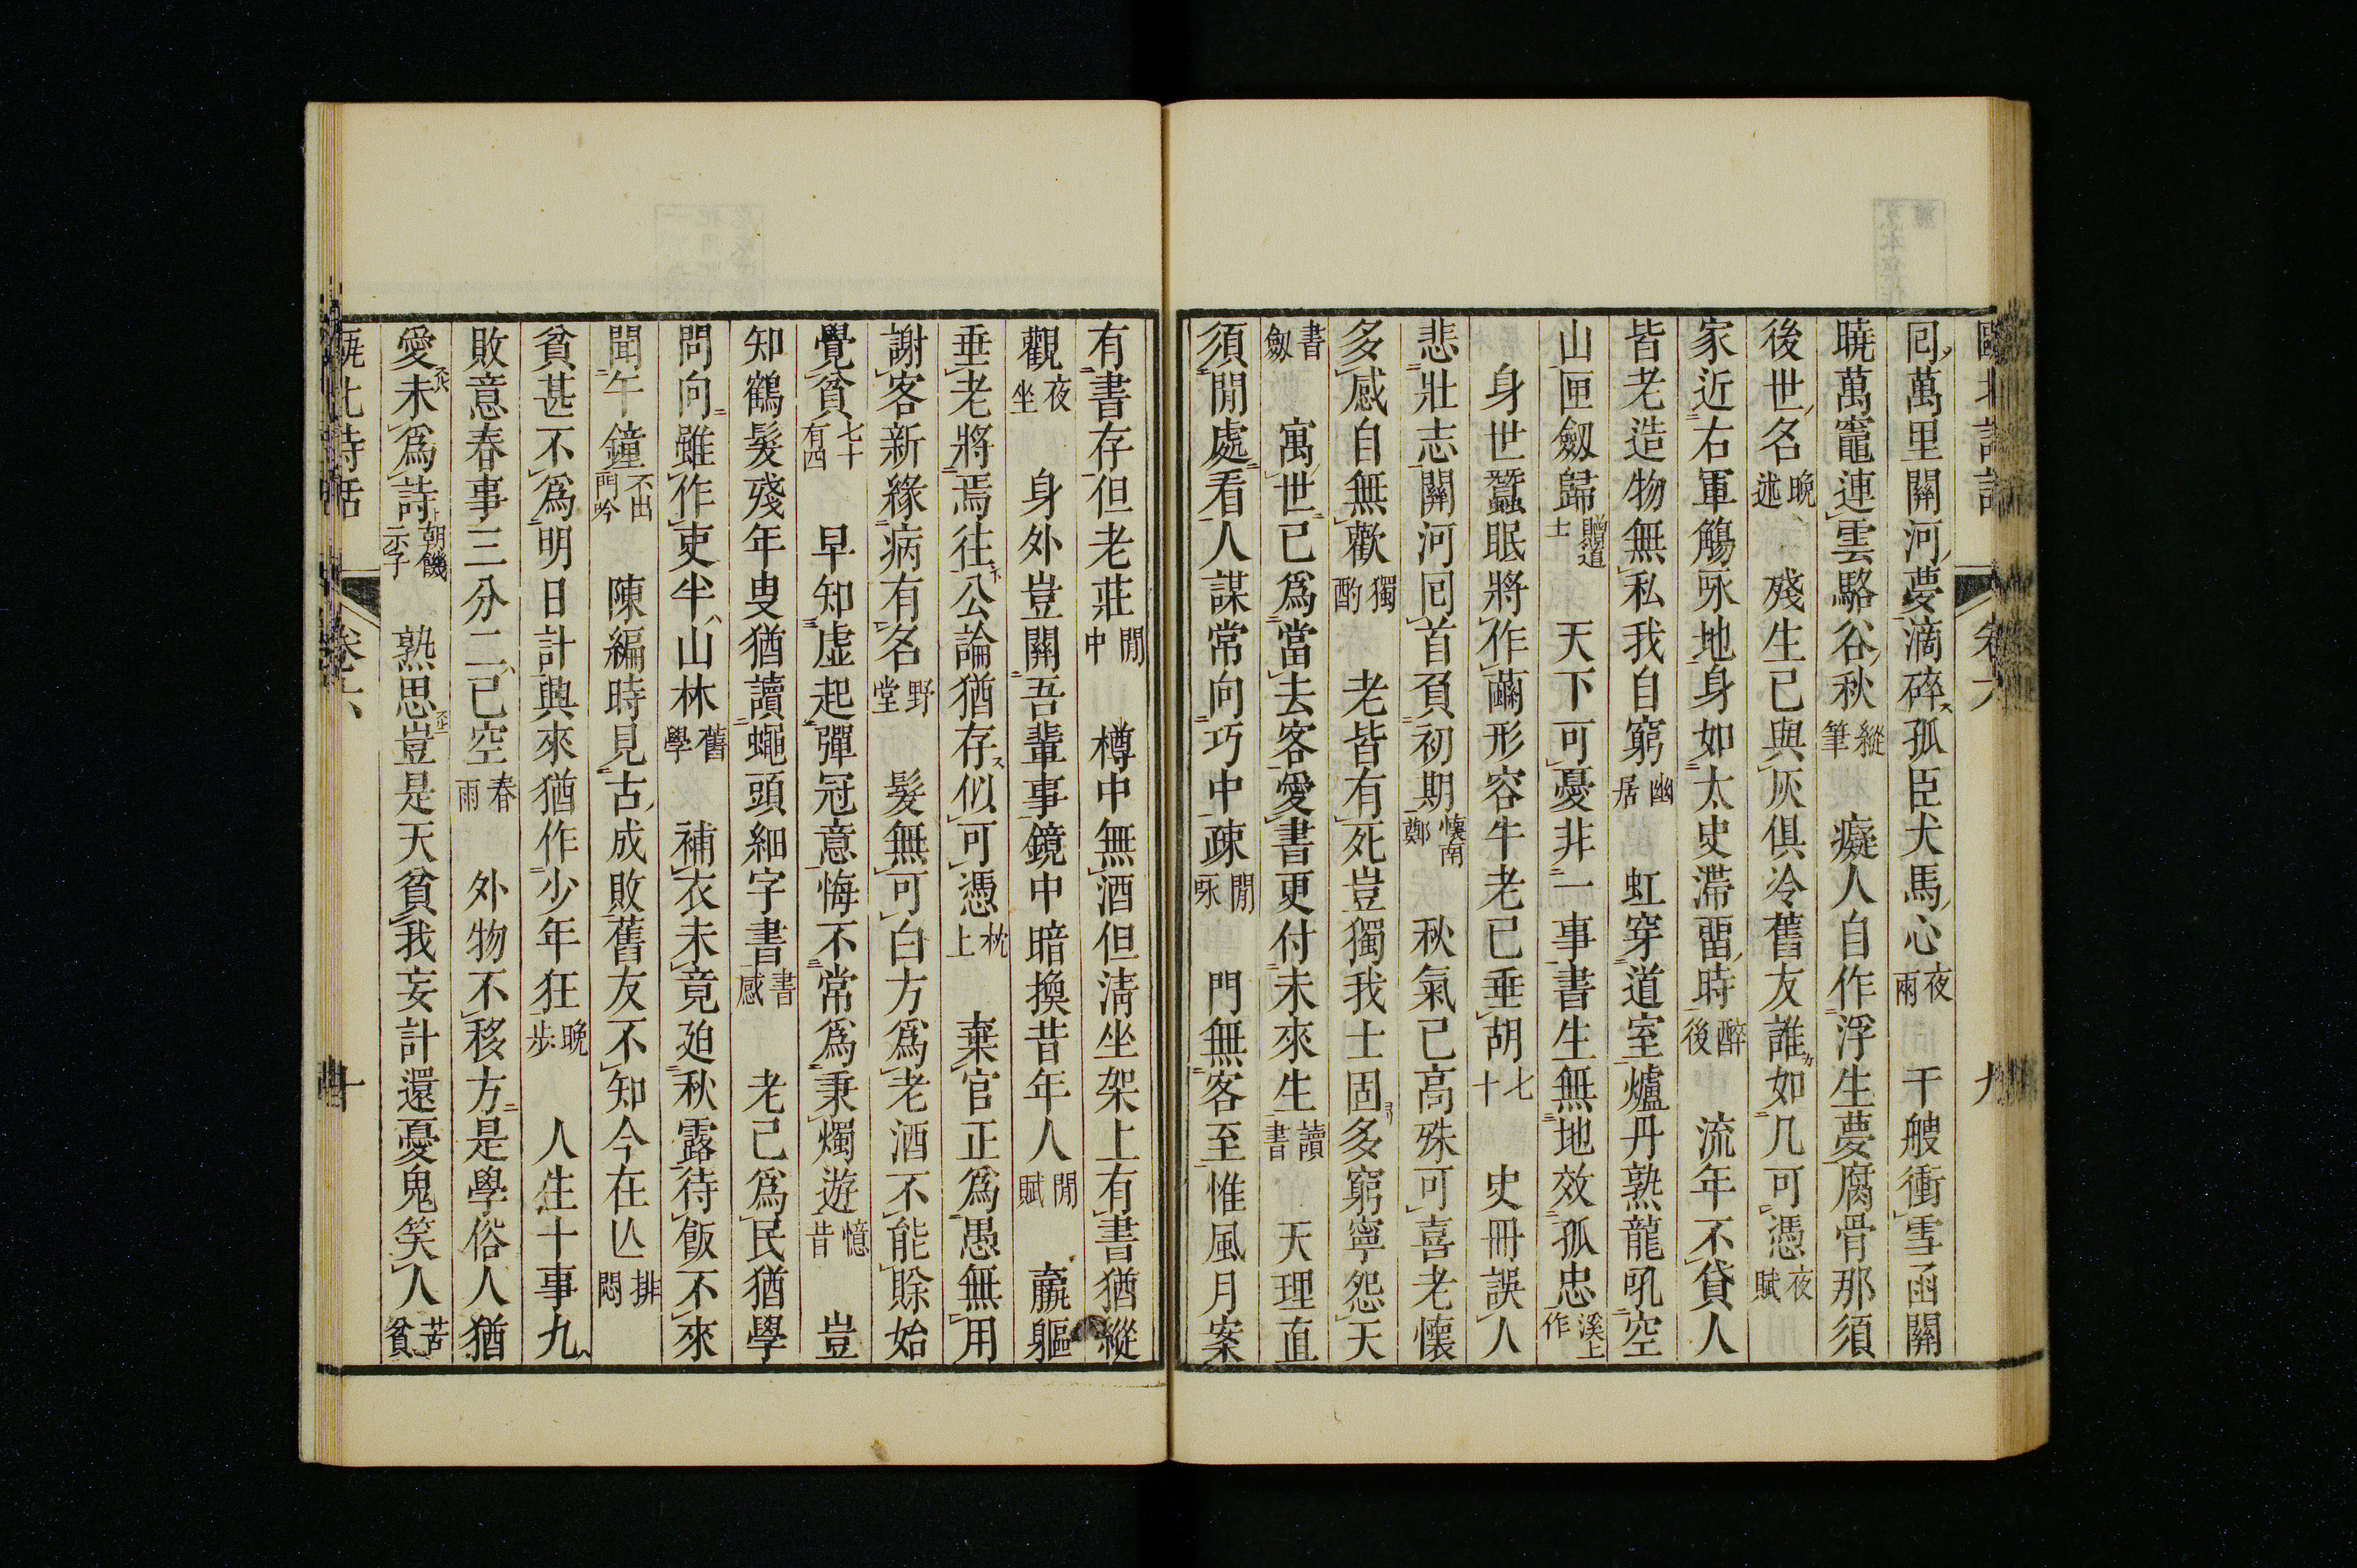 回萬里關河夢滴碎孤臣犬馬心夜雨　干艘衝雪函關
曉萬竈連雲駱谷秋縱筆　癡人自作浮生夢腐骨那須
後世名晩述　殘生已與灰俱冷舊友誰如几可憑夜賦
家近右軍觴咏地身如太史滯畱時醉後　流年不貸人
皆老造物無私我自窮幽居　虹穿道室爐丹熟龍吼空
山匣劒歸贈道士　天下可憂非一事書生無地效孤忠溪上作
身世蠶眠將作繭形容牛老已垂胡七十　史冊誤人
悲壯志關河回首負初期懷南鄭　秋氣已高殊可喜老懷
多感自無歡獨酌　老皆有死豈獨我士固多窮寧怨天
書劒　寓世已爲當去客愛書更付未來生讀書　天理直
須閒處看人謀常向巧中疎閒咏　門無客至惟風月案
有書存但老莊閒中　樽中無酒但淸坐架上有書猶縱
觀夜坐　身外豈關吾輩事鏡中暗換昔年人閒賦　羸軀
垂老將焉往公論猶存似可憑枕上　棄官正爲愚無用
謝客新緣病有名野堂　髮無可白方爲老酒不能賖始
覺貧七十有四　早知虛起彈冠意悔不常爲秉燭遊憶昔　豈
知鶴髮殘年叟猶讀蠅頭細字書書感　老已爲民猶學
問向雖作吏半山林舊學　補衣未竟廹秋露待飯不來
聞午鐘不出門吟　陳編時見古成敗舊友不知今在亾排悶
貧甚不爲明日計興來猶作少年狂晩步　人生十事九
敗意春事三分二已空春雨　外物不移方是學俗人猶
愛未爲詩朝饑示子　熟思豈是天貧我妄計還憂鬼笑人苦貧